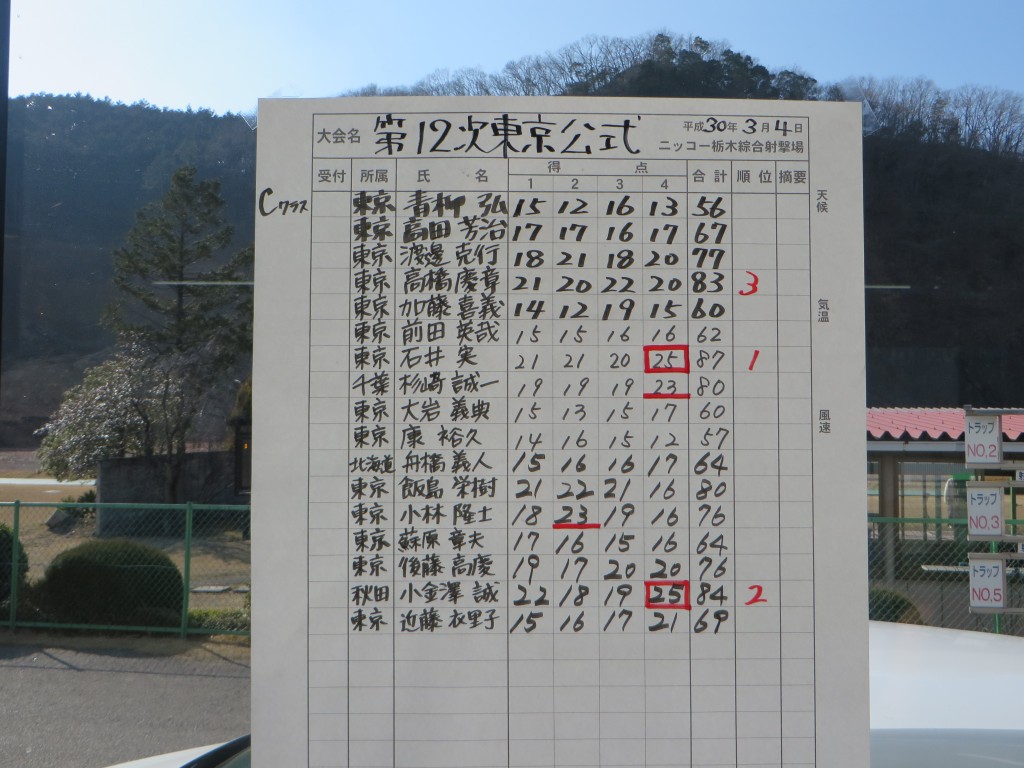 大会名 第12次東京公式 平成30年3月4日
ニッコー栃木綜合射撃場
受付 所属 氏名 得点 合計 順位 摘要
1 2 3 4
Cクラス 東京 青柳 弘 15 12 16 13 56
東京 高田 芳治 17 17 16 17 67
東京 渡邊 克行 18 21 18 20 77
東京 高橋 慶章 21 20 22 20 83 3
東京 加藤 嘉義 14 12 19 15 60
東京 前田 英哉 15 15 16 16 62
東京 石井 実 21 21 20 25 87 1
千葉 杉崎 誠一 19 19 19 23 80
東京 大岩 義典 15 13 15 17 60
東京 康 裕久 14 16 15 12 57
北海道 舟橋 義人 15 16 16 17 64
東京 飯島 栄樹 21 22 21 16 80
東京 小林 隆士 18 23 19 16 76
東京 蘇原 章夫 17 16 15 16 64
東京 後藤 高慶 19 17 20 20 76
秋田 小金澤 誠 22 18 19 25 84 2
東京 近藤 衣里子 15 16 17 21 69
天候
気温
風速
トラップ
NO.2
トラップ
NO.3
トラップ
NO.5